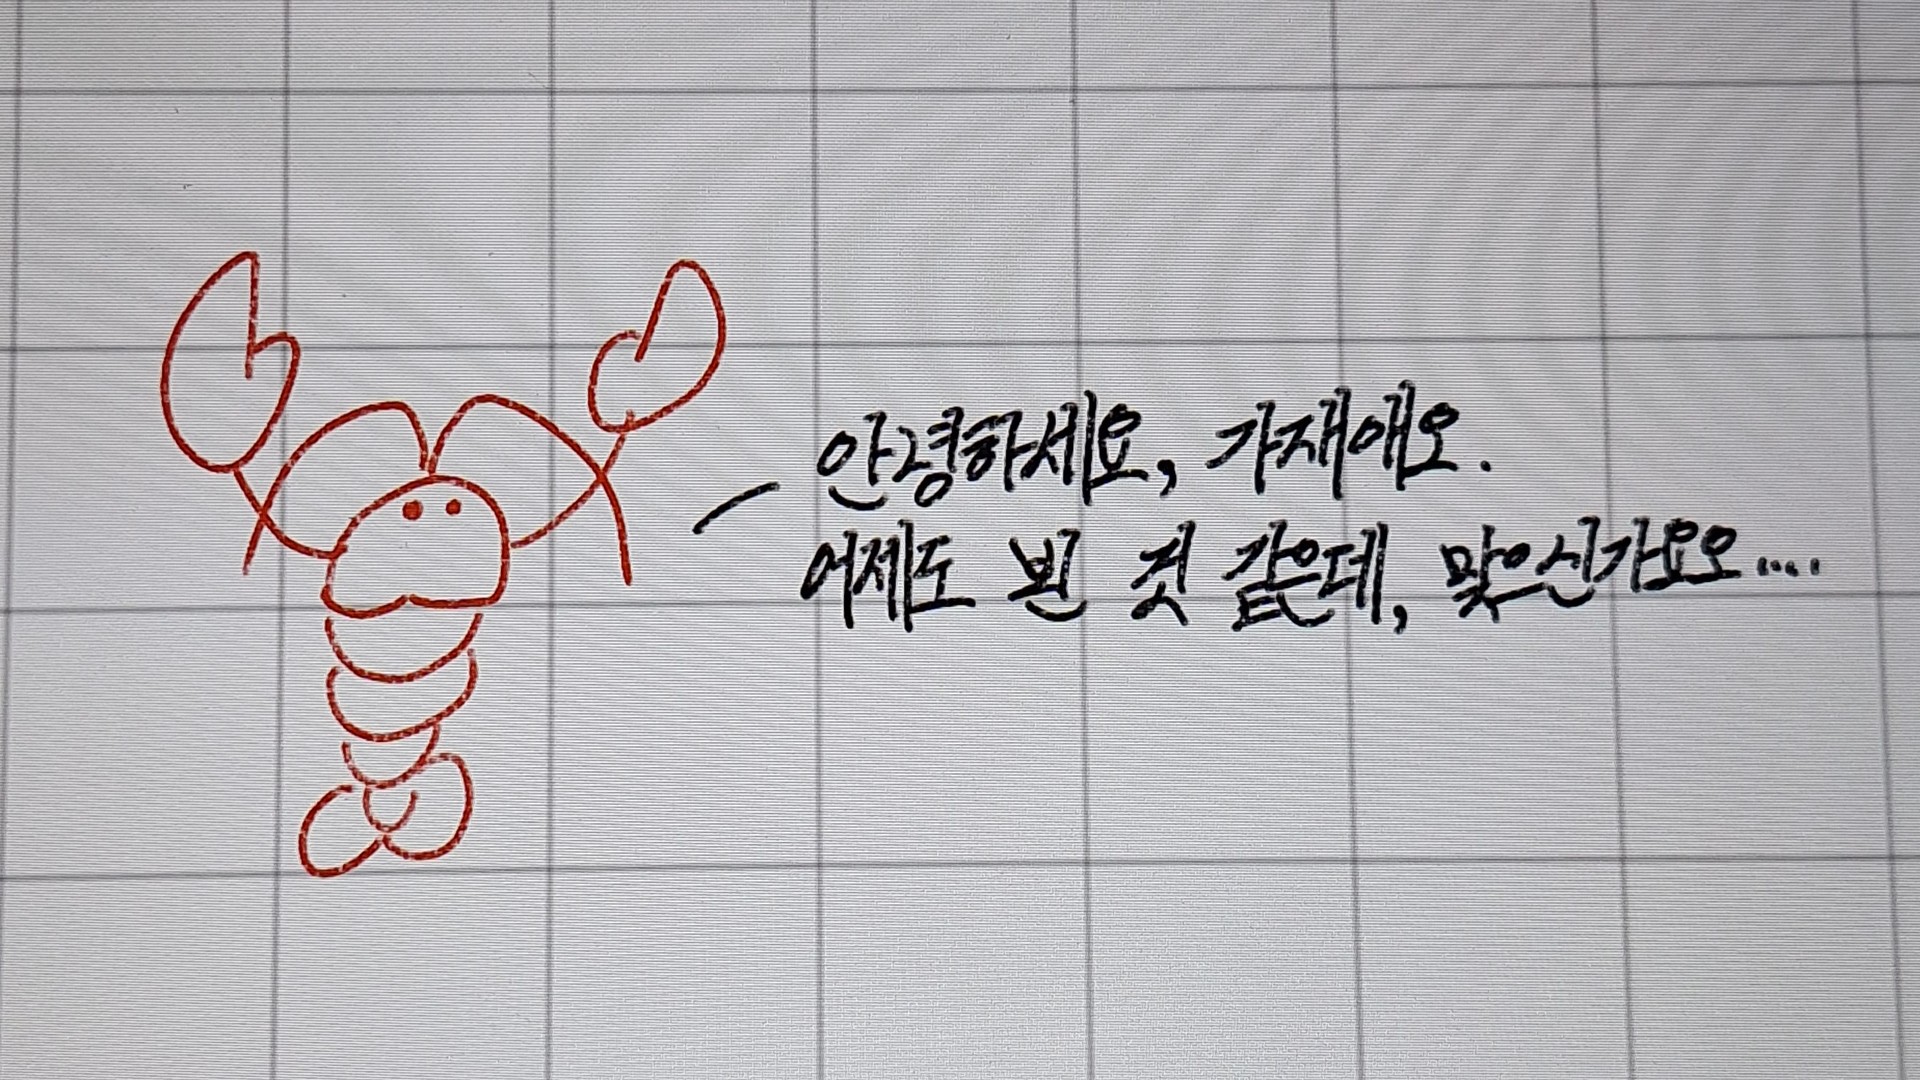 안녕하세요, 가재애오.
어제도 뵌 것 같은데, 맞으신가요오...